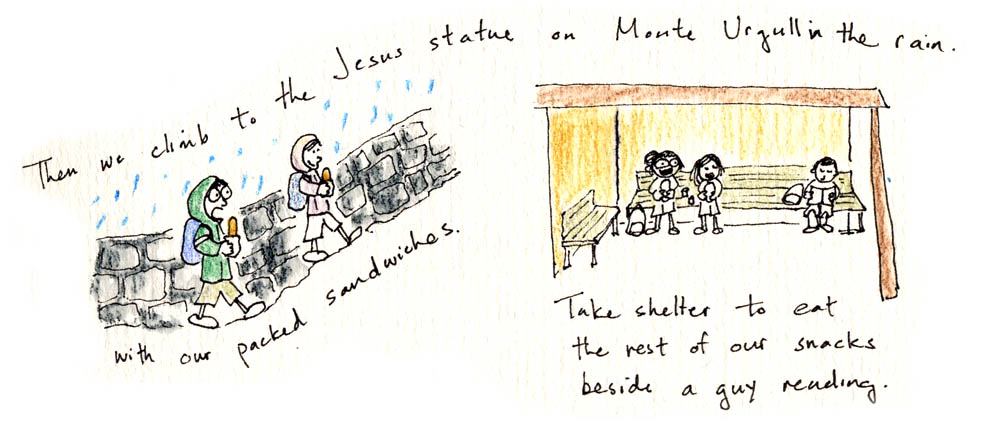 Then we climb to the Jesus statue on Monte Urgull in the rain.
with our packed sandwiches.
Take shelter to eat
the rest of our snacks
beside a guy reading.